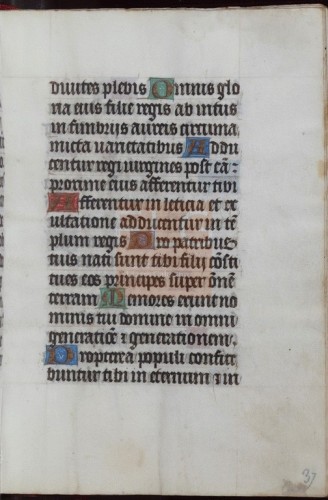 diuites plebis Omnis glo
ria eius filie regis ab intus
in fimbrijs aureis circuma
micta uarietatibus Addu
centur regi uirgines post eā:
proxime eius afferentur tibi
Afferentur in leticia et ex
ultatione adducentur in tē
plum regis Pro patribus
tuis nati sunt tibi filij cōsti
tues eos principes super ōnē
terram Memores erunt no
minis tui domine in omni
generatiōe & generationem.
Propterea populi confite
buntur tibi in eternum & in
37